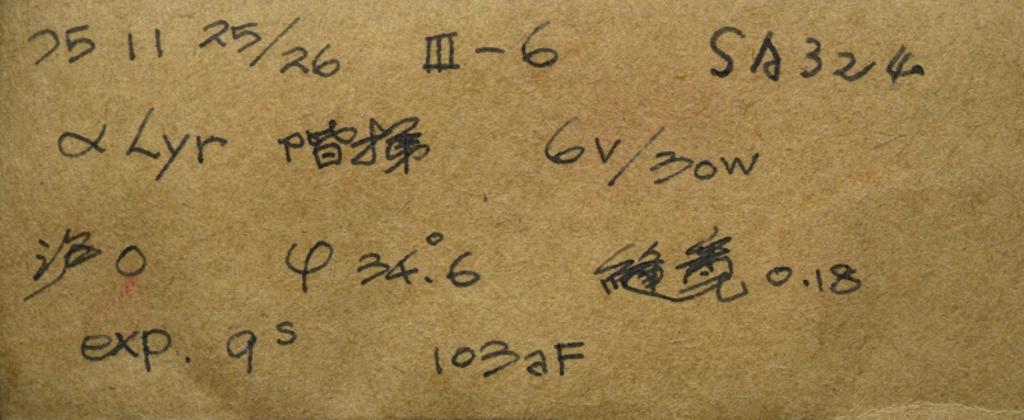 75 11 25/26 III-6 SA324
α Lyr 階梯 6V/30W
沪 0 φ 34.°6 縫寛 0.18
exp. 9s 103aF